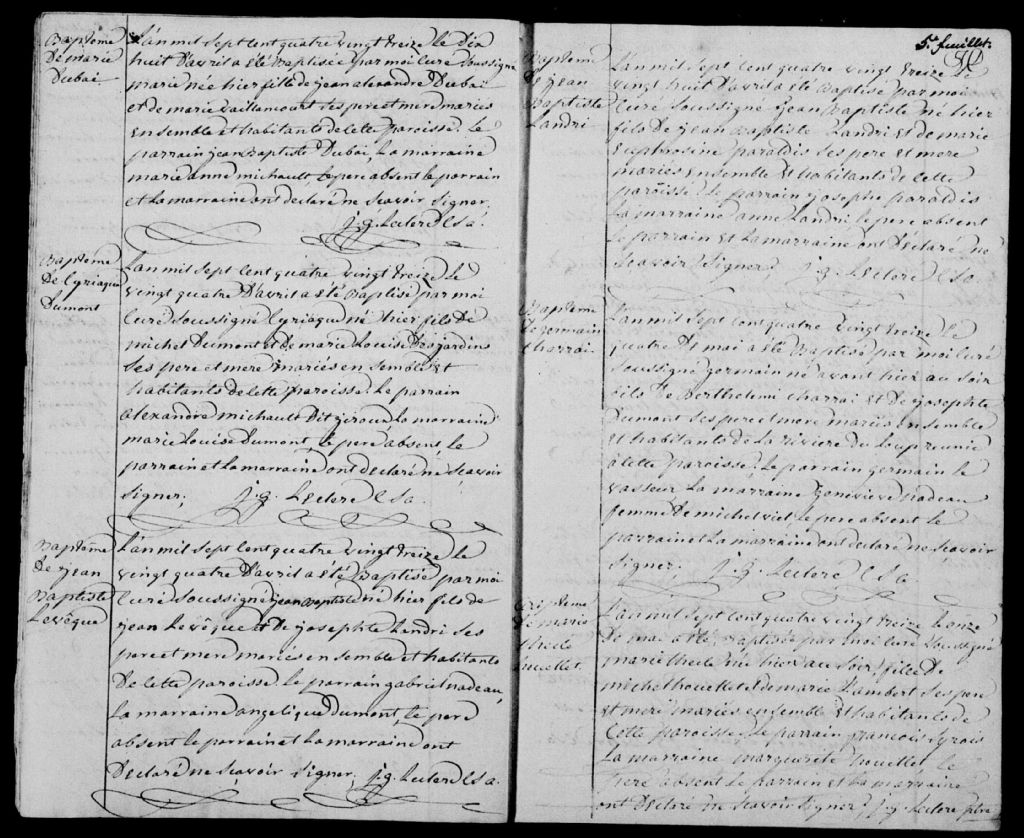 Bapteme
De marie
Dubai
L'an mil sept cent quatre vingt treize le Dix
huit D'avril a été Baptisée par moi Curé soussigné
marie née hier fille de jean alexandre Dubai
et de marie vaillancourt ses pere et mere mariés
ensemble et habitants de cette paroisse. Le
parrain jean Baptiste Dubai, La marraine
marie anne michault, Le pere absent le parrain
et La marraine ont declaré ne scavoir signer.
j. g. Leclerc C sa.
Bapteme
De Cyriaque
Dumont
L'an mil sept cent quatre vingt treize le
vingt quatre D'avril a été Baptisé par moi
Curé soussigné Cyriaque né hier fils de
michel Dumont et de marie Louise Desjardins
ses pere et mere mariés ensemble et
habitants de cette paroisse. Le parrain
alexandre michault Dit giroux La marraine
marie Louise Dumont, le pere absent, le
parrain et La marraine ont declaré ne scavoir
signer. j. g. Leclerc C Sa.
Baptême
De jean
Baptiste
Levêque
L'an mil sept cent quatre vingt treize le
vingt quatre D'avril a été Baptisé par moi
Curé soussigné jean Baptiste né hier fils de
jean Levêque et De josephte Landri ses
pere et mere mariés ensemble et habitants
De cette paroisse. Le parrain gabriel nadeau,
La marraine angelique Dumont, le pere
absent le parrain et La marraine ont
Declaré ne scavoir signer. j. g. Leclerc C sa.
5e. feuillet.
Bapteme
De jean
Baptiste
Landri
L'an mil sept cent quatre vingt treize le
vingt huit D'avril a été Baptisé par moi
Curé soussigné jean Baptiste né hier
fils De jean Baptiste Landri et de marie
Euphrosine paradis ses pere et mere
mariés ensemble et habitants de cette
paroisse. Le parrain joseph paradis
La marraine anne Landri, le pere absent
Le parrain et La marraine ont Déclaré ne
scavoir signer. j. g. Leclerc C Sa.
Baptême
De germain
Charrai
L'an mil sept cent quatre vingt treize le
quatre De mai a été Baptisé par moi Curé
soussigné germain né avant hier au soir
fils De Berthelemi Charrai et De josephte
Dumont ses pere et mere mariés ensemble
et habitants De La riviere du Loup reunie
à cette paroisse. Le parrain germain le
vasseur La marraine genevieve nadeau
femme De michel viel le pere absent le
parrain et La marraine ont declaré ne scavoir
signer. j. g. Leclerc C Sa
Baptême
De marie
thecle
ouellet.
L'an mil sept cent quatre vingt treize Le onze
De mai a été Baptisée par moi Curé soussigné
marie thecle née hier au soir, fille De
michel houellet et de marie Lambert ses pere
et mere mariés ensemble et habitants de
Cette paroisse. Le parrain francois Syrois
La marraine marguerite houellet. Le
pere absent Le parrain et La marraine
ont Declaré ne scavoir signer. j. g. Leclerc ptre